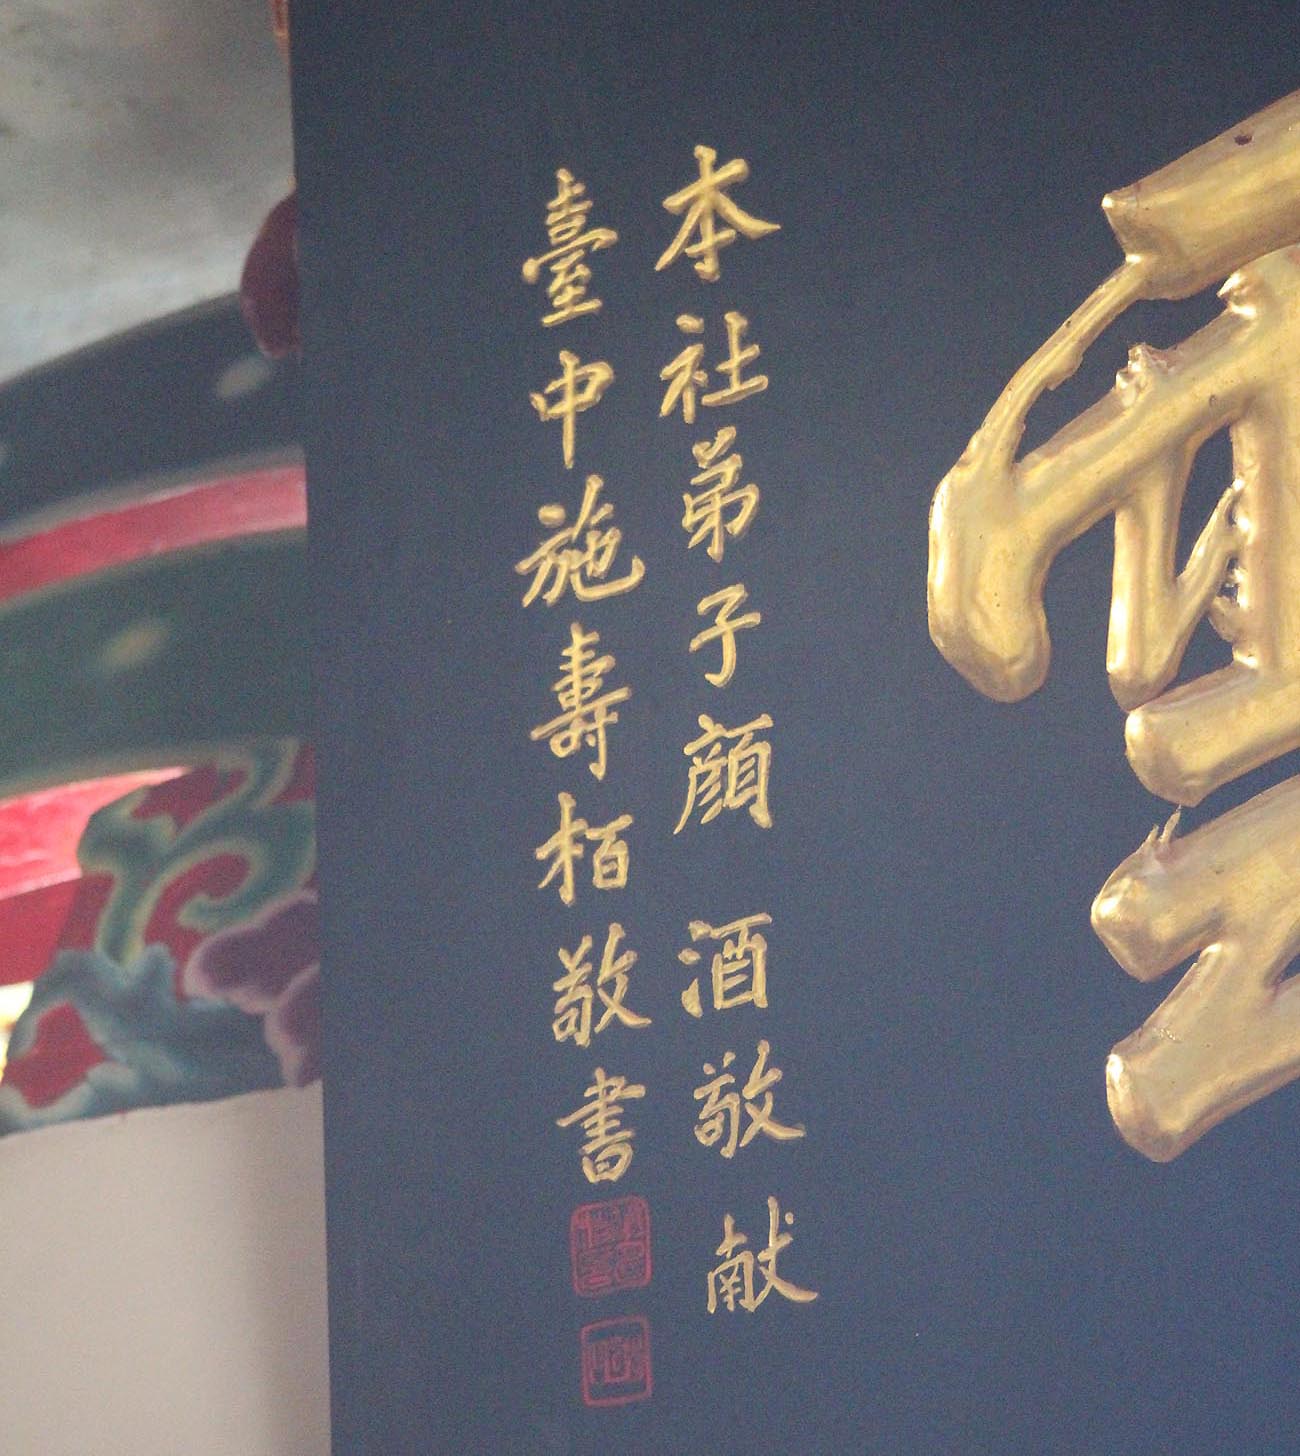 本社弟子顏 酒敬献
臺中施壽栢敬書